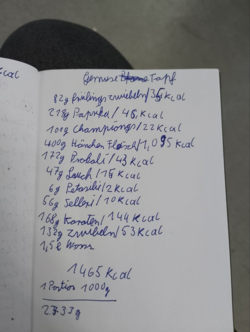 Kcal
Gemüse Topf
82g Frühlingszwiebeln/35Kcal
218g Paprika/45,Kcal
100g Champions/22Kcal
400g Hänchen Fleisch/1,095Kcal
172g Brokoli/43 Kcal
47g Lauch/15 Kcal
6g Petersilie/2Kcal
56g Sellerie/10Kcal
168g Karoten/144 Kcal
132g zwiebeln/53 Kcal
1,5l
1465 Kcal
1 Portion 1000g
2733g